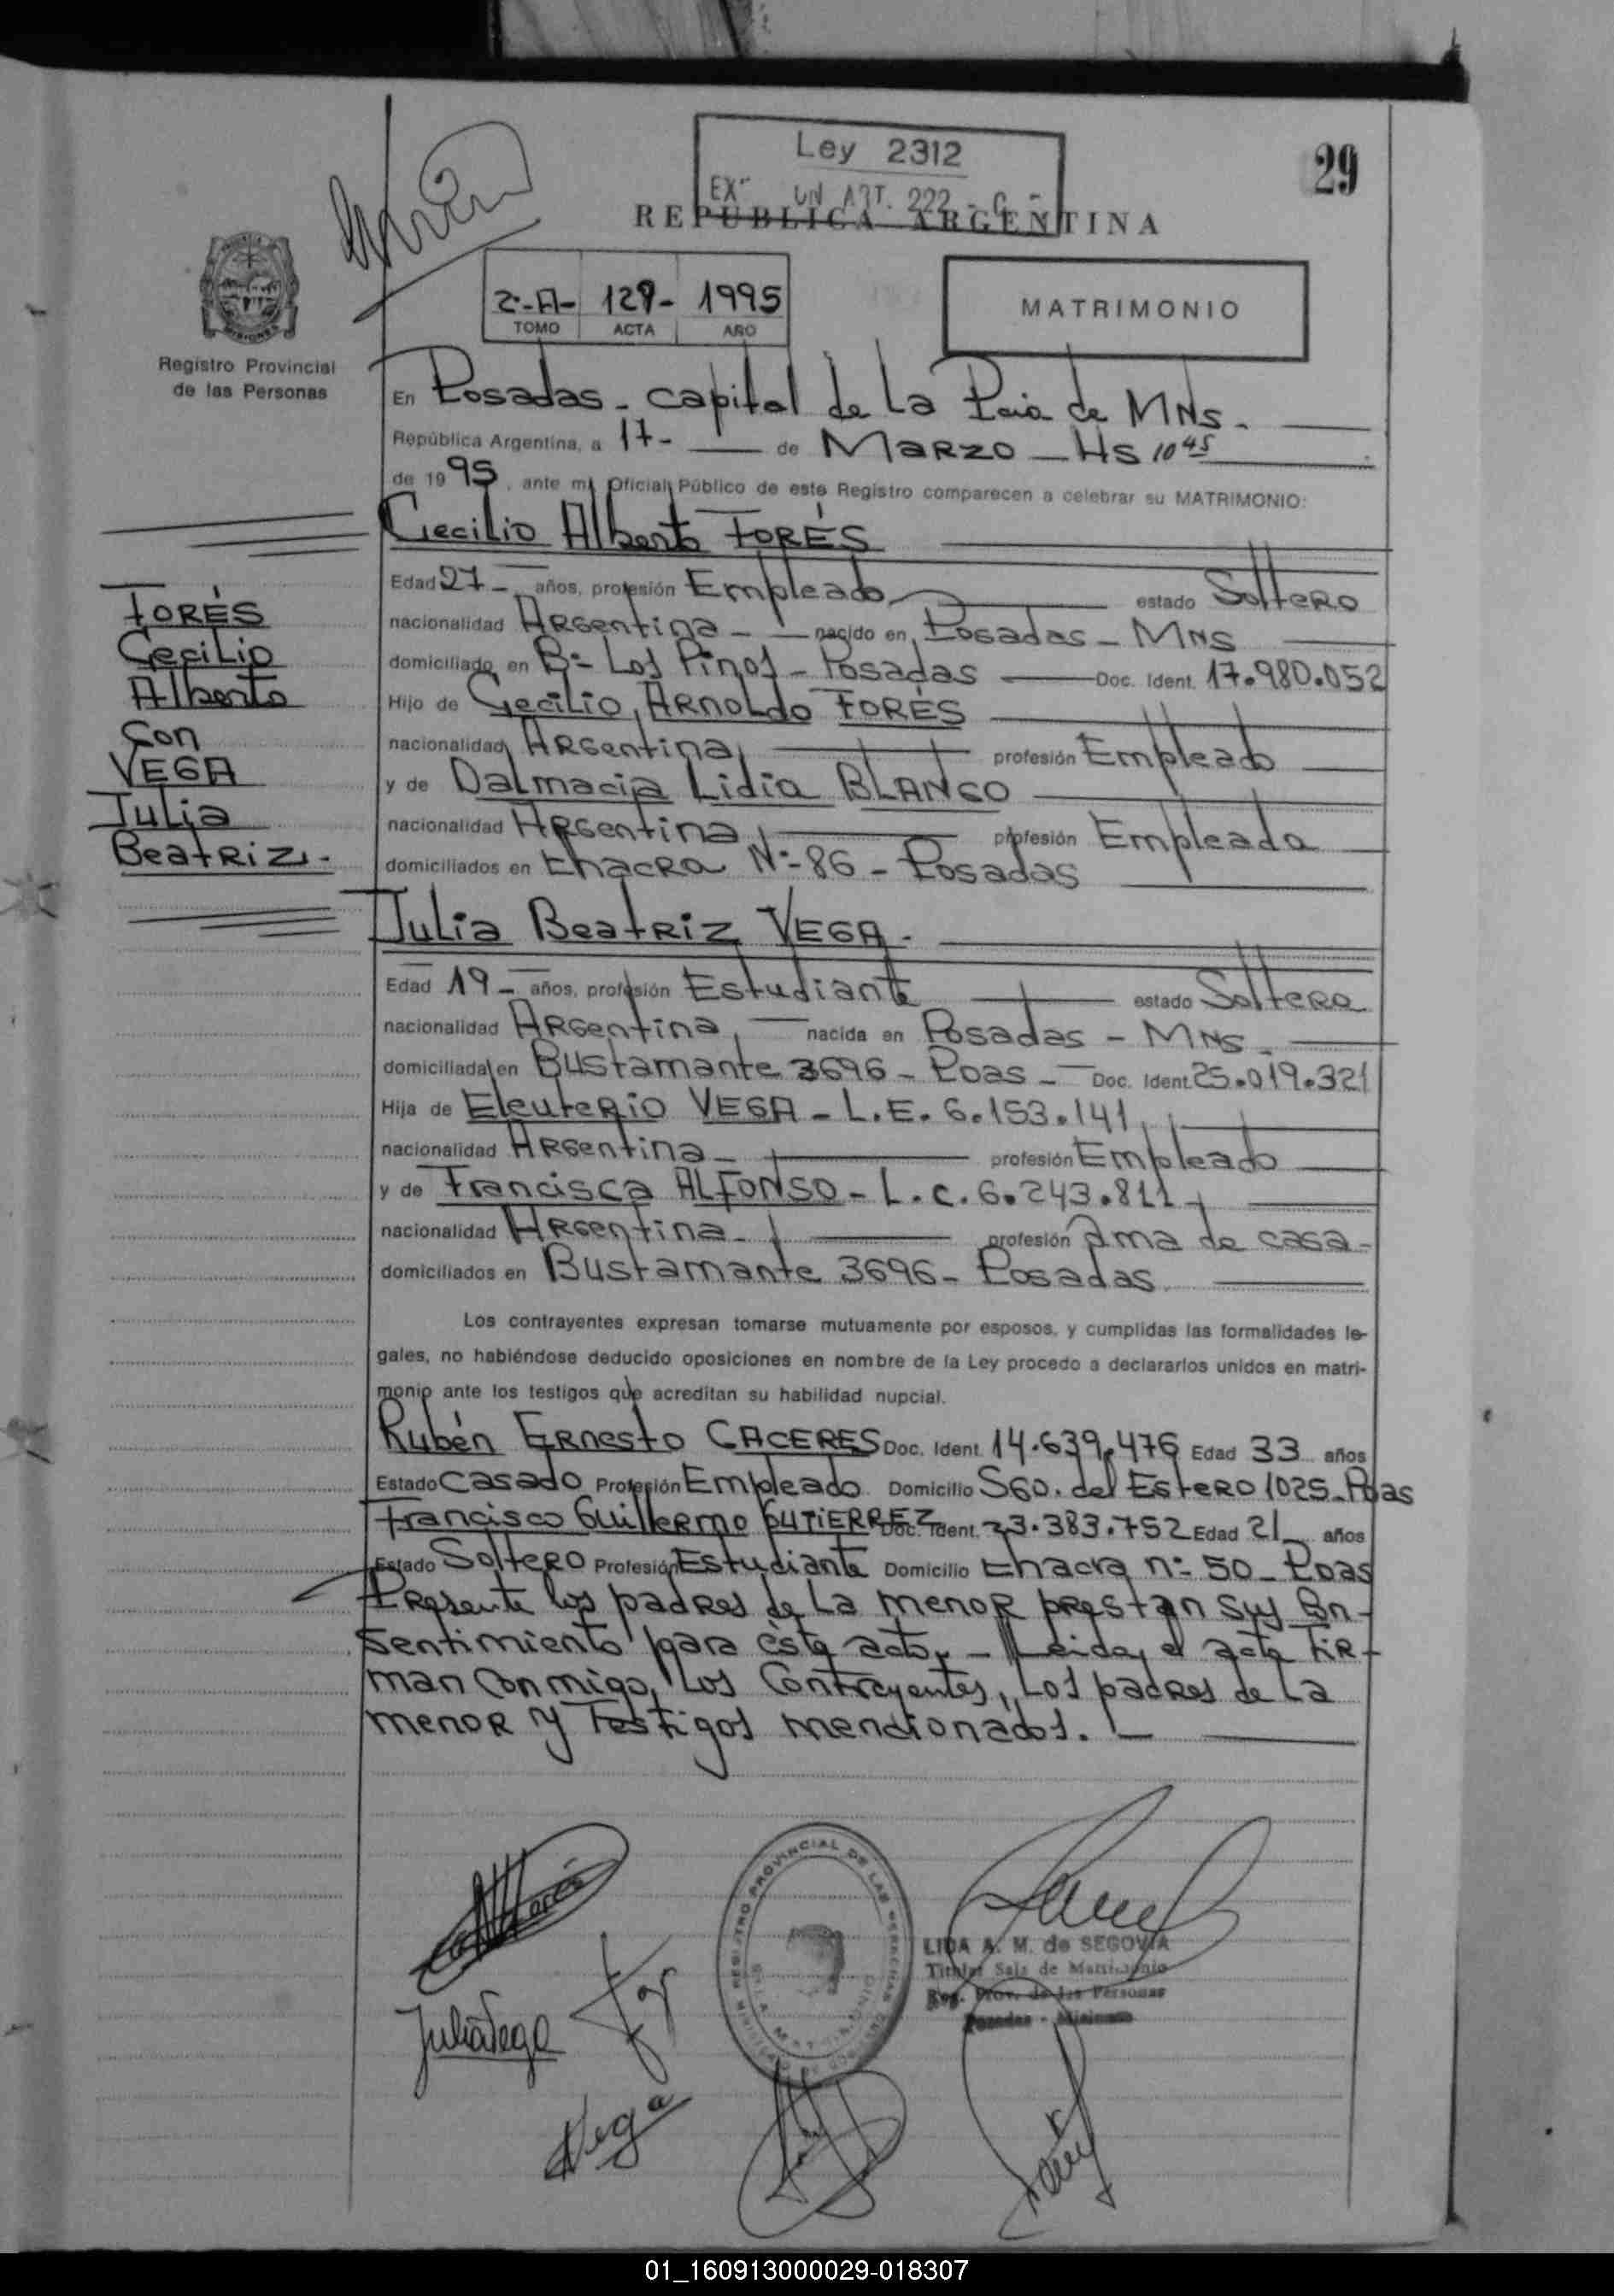 Ley 2312
29
REPUBLICA ARGENTINA
2º-A- 129- 1995
TOMO ACTA AÑO
MATRIMONIO
PROVINCIA DE
MISIONES
Registro Provincial
de las Personas
En Posadas - capital de La Pcia de MNs.
República Argentina, a 17- de Marzo - Hs 10 45
de 1995, ante mí Oficial Público de este Registro comparecen a celebrar su MATRIMONIO:
Cecilio Alberto FORÉS
Edad 27- años, profesión Empleado estado Soltero
nacionalidad Argentina - nacido en Posadas - MNs
domiciliado en Bº- Los Pinos - Posadas Doc. Ident. 17.980.052
Hijo de Cecilio Arnoldo FORÉS
nacionalidad Argentina profesión Empleado
y de Dalmacia Lidia BLANCO
nacionalidad Argentina profesión Empleada
domiciliados en Chacra Nº-86 - Posadas
FORÉS
Cecilio
Alberto
Con
VEGA
Julia
Beatriz.-
Julia Beatriz VEGA.
Edad 19- años, profesión Estudiante estado Soltera
nacionalidad Argentina nacida en Posadas - MNs.
domiciliada en Bustamante 3696 - Poas - Doc. Ident. 25.019.321
Hija de Eleuterio VEGA - L.E. 6.153.141
nacionalidad Argentina - profesión Empleado
y de Francisca ALFONSO - L.C. 6.243.811
nacionalidad Argentina - profesión Ama de casa -
domiciliados en Bustamante 3696 - Posadas
Los contrayentes expresan tomarse mutuamente por esposos, y cumplidas las formalidades le-
gales, no habiéndose deducido oposiciones en nombre de la Ley procedo a declararlos unidos en matri-
monio ante los testigos que acreditan su habilidad nupcial.
Rubén Ernesto CACERES Doc. Ident. 14.639.476 Edad 33 años
Estado Casado Profesión Empleado Domicilio Sgo. del Estero 1025 - Poas
Francisco Guillermo GUTIERREZ Doc. Ident. 23.383.752 Edad 21 años
Estado Soltero Profesión Estudiante Domicilio Chacra nº 50 - Poas
Presente los padres de La menor prestan sus Con-
sentimiento para éste acto. - Leida el acta Fir-
man Conmigo, Los Contrayentes, Los padres de La
menor y Testigos mencionados. -
Julia Vega
Vega
REGISTRO PROVINCIAL DE LAS PERSONAS
LIDA A. M. de SEGOVIA
Titular Sala de Matrimonio
Reg. Prov. de las Personas
Posadas - Misiones
01_160913000029-018307